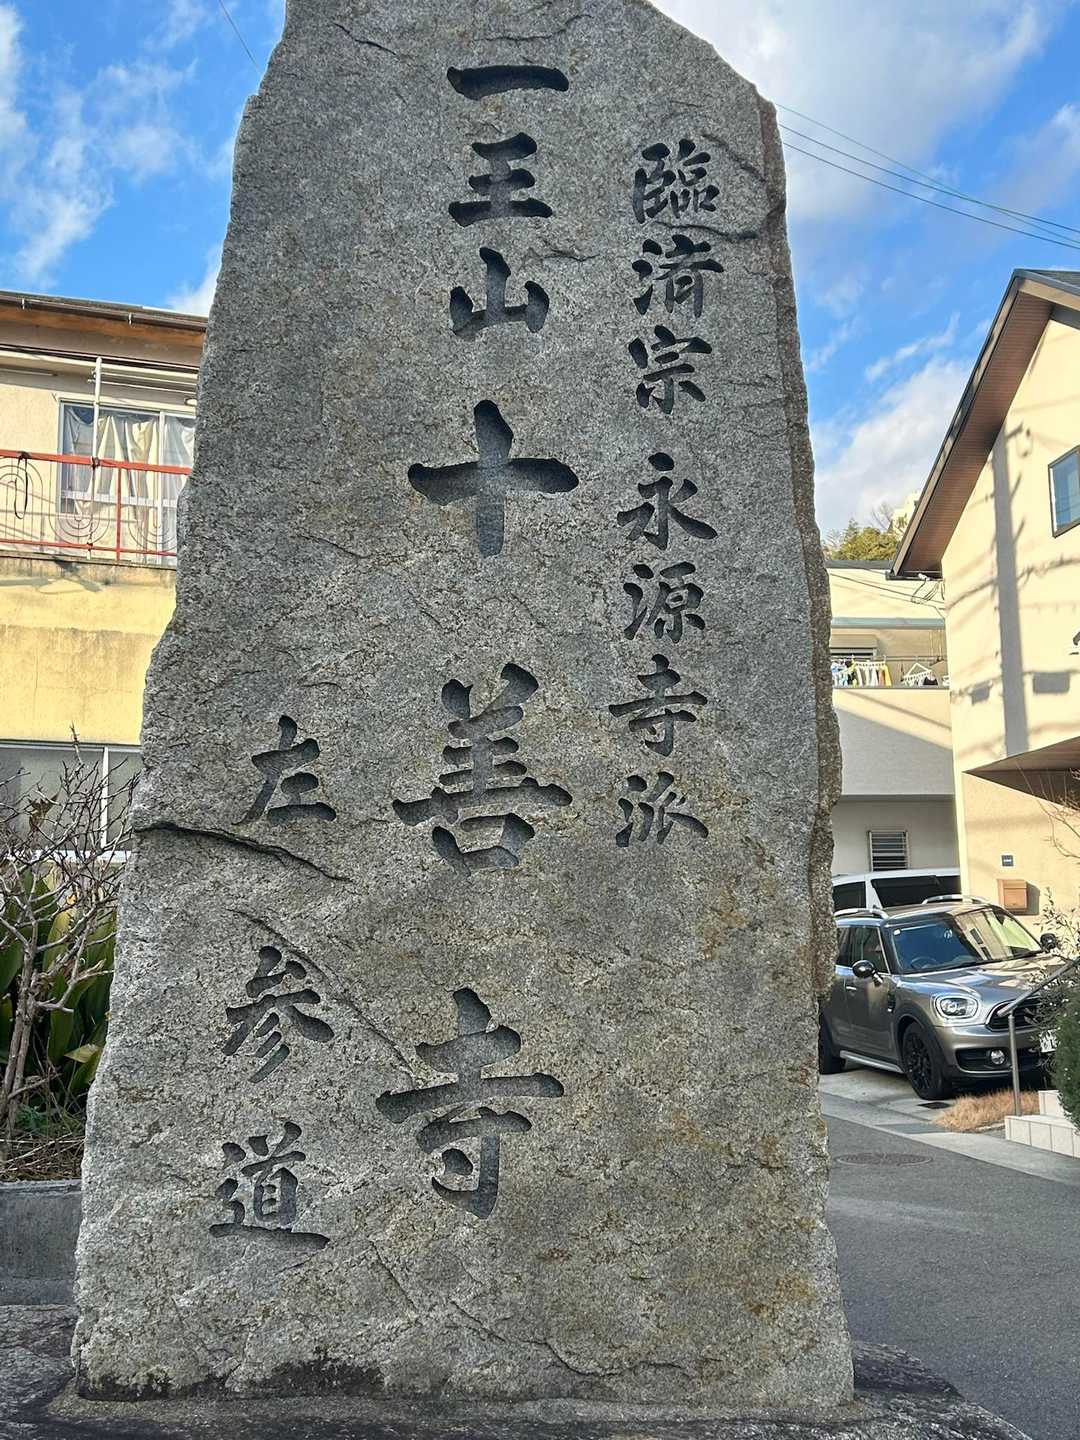 臨済宗 永源寺派
一王山 十善寺
左 参道